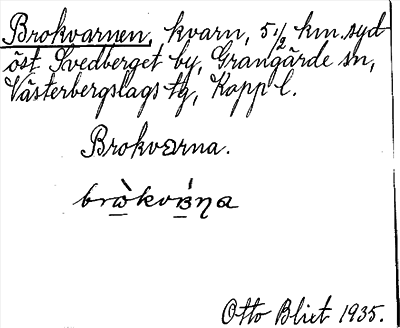 Brokvarnen, kvarn, 5 1/2 km. syd
öst Svedberget by, Grangärde sn,
Västerbergslags tg, Kopp l.
Brokvarna.
Otto Blixt 1935.